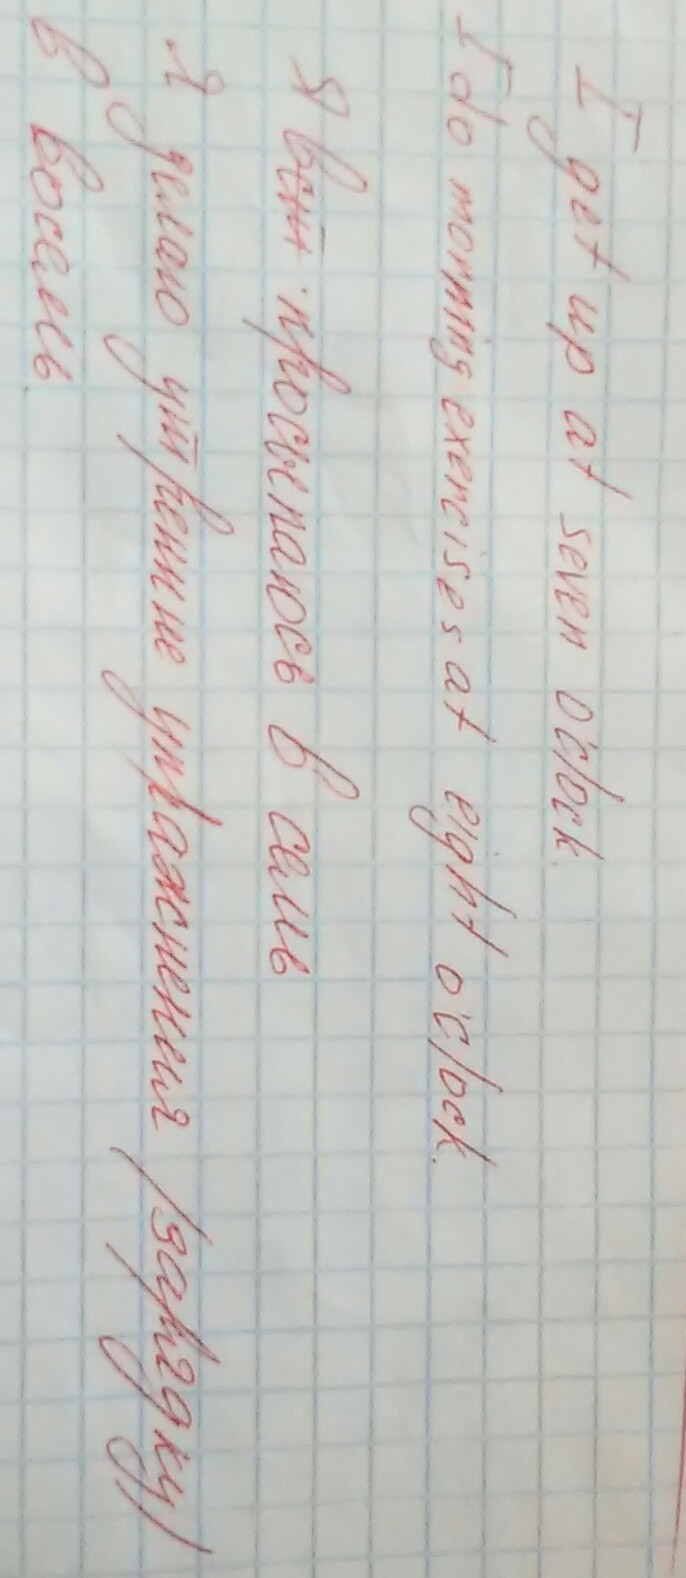 I get up at seven o'clock.
I do morning exercises at eight o'clock.
Я просыпаюсь в семь
Я делаю утренние упражнения /зарядку/
в восемь